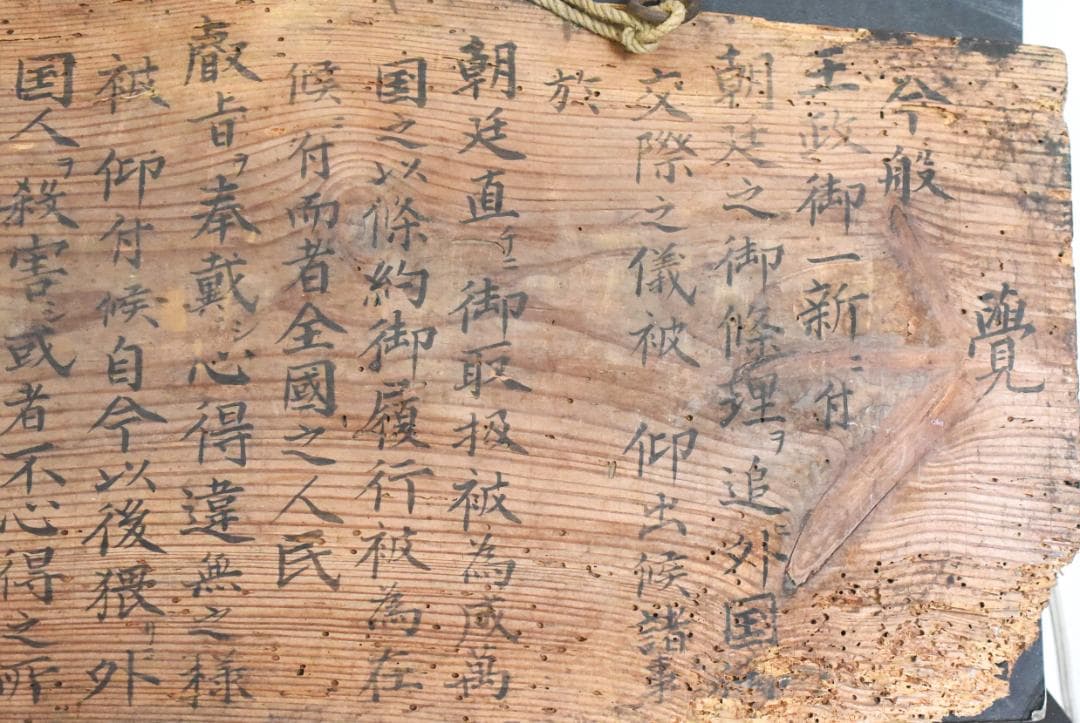 覺
今般
王政御一新ニ付
朝廷之御條理ヲ追外国
交際之儀被 仰出候諸事
於
朝廷直チニ御取扱被為成萬
国之以條約御履行被為在
候ニ付而者全國之人民
叡旨ヲ奉戴シ心得違無之様
被 仰付候自今以後猥リニ外
国人ヲ殺害シ或者不心得之所